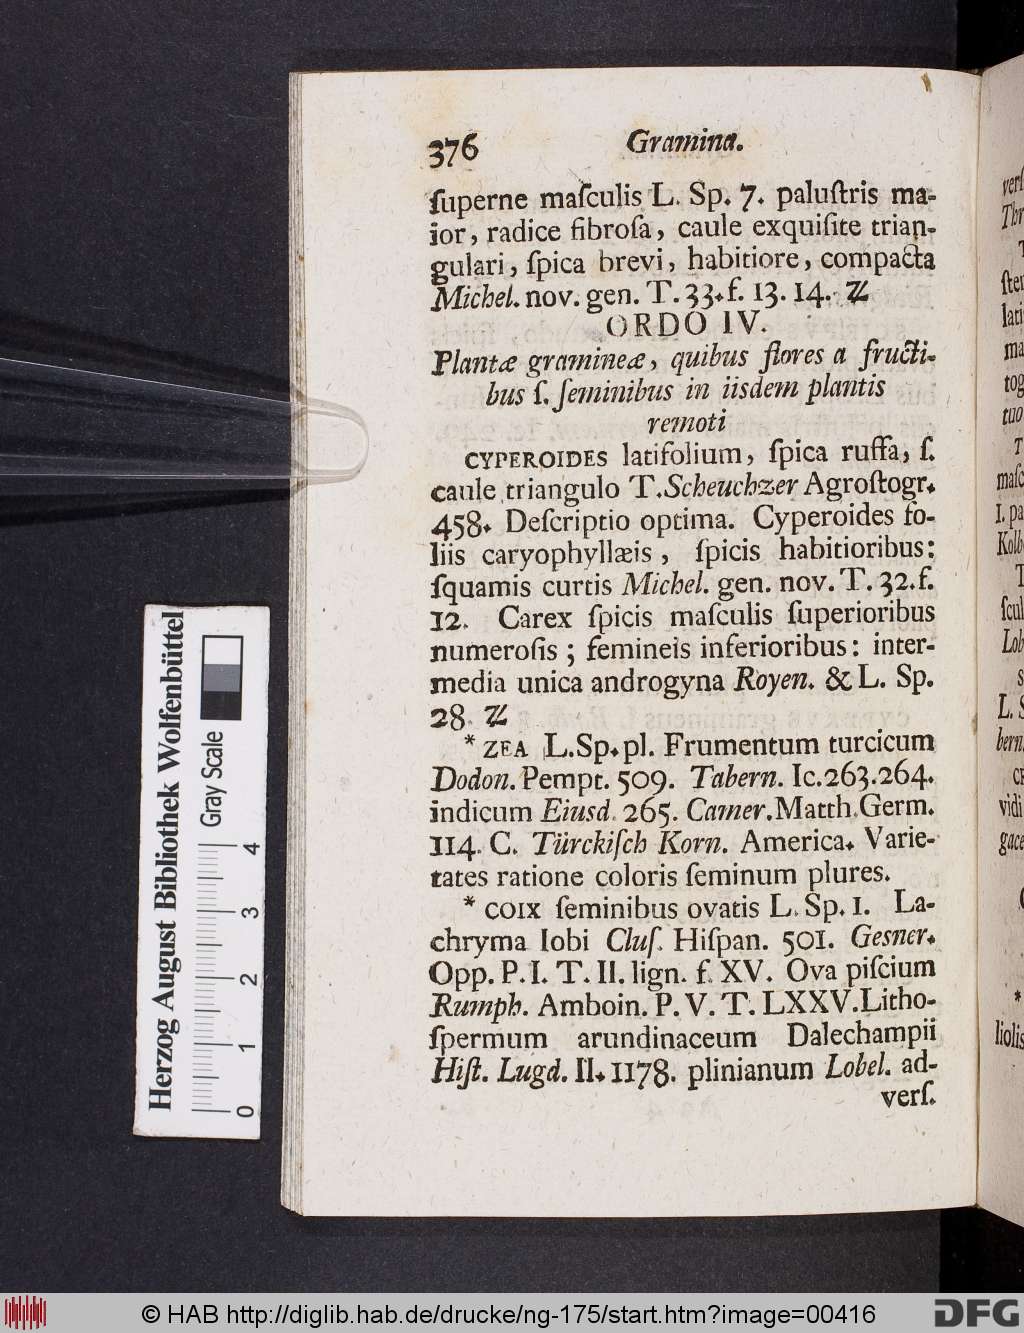 376 Gramina.
ſuperne maſculis L. Sp. 7. paluſtris ma-
ior, radice fibroſa, caule exquiſite trian-
gulari, ſpica brevi, habitiore, compacta
Michel. nov. gen. T. 33. f. 13. 14. ♃
ORDO IV.
Plantæ gramineæ, quibus flores a fructi-
bus ſ. ſeminibus in iisdem plantis
remoti
CYPEROIDES latifolium, ſpica ruffa, ſ.
caule triangulo T. Scheuchzer Agroſtogr.
458. Deſcriptio optima. Cyperoides fo-
liis caryophyllæis, ſpicis habitioribus:
ſquamis curtis Michel. gen. nov. T. 32. f.
12. Carex ſpicis maſculis ſuperioribus
numeroſis; femineis inferioribus: inter-
media unica androgyna Royen. & L. Sp.
28. ♃
* ZEA L. Sp. pl. Frumentum turcicum
Dodon. Pempt. 509. Tabern. Ic. 263. 264.
indicum Eiusd. 265. Camer. Matth. Germ.
114. C. Türckiſch Korn. America. Varie-
tates ratione coloris ſeminum plures.
* COIX ſeminibus ovatis L. Sp. 1. La-
chryma Iobi Cluſ. Hiſpan. 501. Gesner.
Opp. P. I. T. II. lign. f. XV. Ova piſcium
Rumph. Amboin. P. V. T. LXXV. Litho-
ſpermum arundinaceum Dalechampii
Hiſt. Lugd. II. 1178. plinianum Lobel. ad-
verſ.
Herzog August Bibliothek Wolfenbüttel
Gray Scale
0 1 2 3 4
© HAB http://diglib.hab.de/drucke/ng-175/start.htm?image=00416
DFG